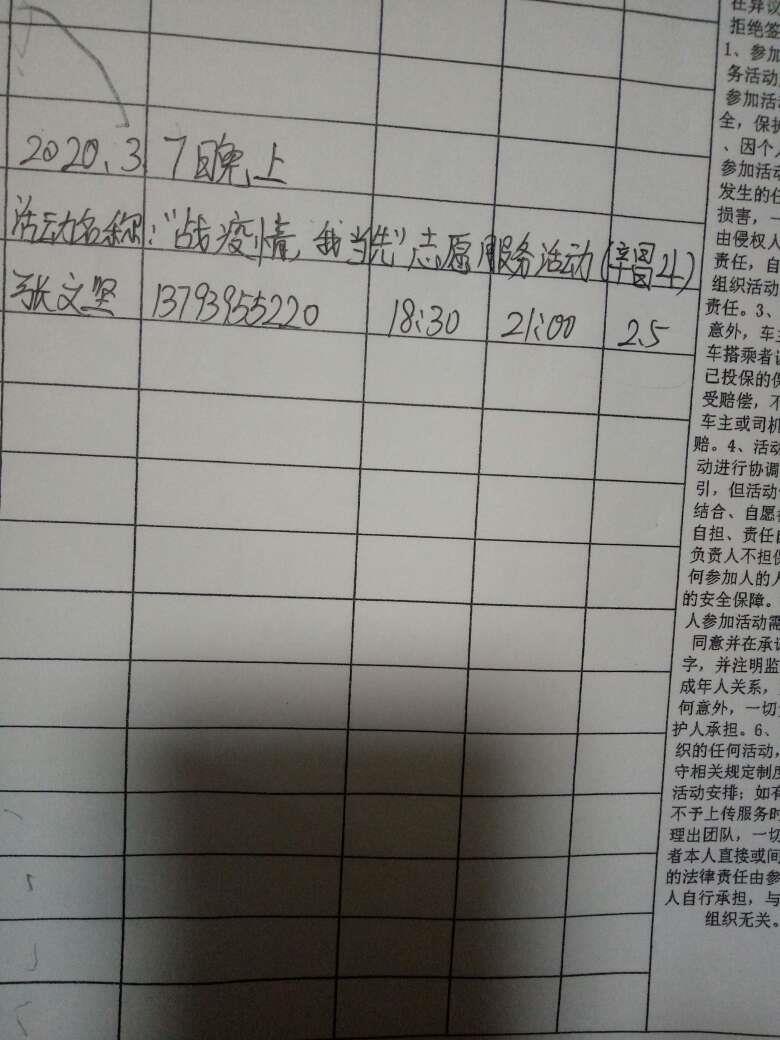 2020.3.7日晚上
活动名称:"战疫情,我当先"志愿服务活动(
张文坚 13793955220 18:30 21:00 2.5
在异议
拒绝签
1、参加
务活动
参加活动
全,保护
、因个人
参加活动
发生的任
损害,一
由侵权人
责任,自
组织活动
责任。3、
意外,车主
车搭乘者
已投保的保
受赔偿,不
车主或司机
赔。4、活动
动进行协调
引,但活动
结合、自愿
自担、责任自
负责人不担保
何参加人的人
的安全保障。
人参加活动需
同意并在承诺
字,并注明监
成年人关系,
何意外,一切
护人承担。6、
织的任何活动,
守相关规定制度
活动安排;如有
不予上传服务时
理出团队,一切
者本人直接或间
的法律责任由参
人自行承担,与
组织无关。